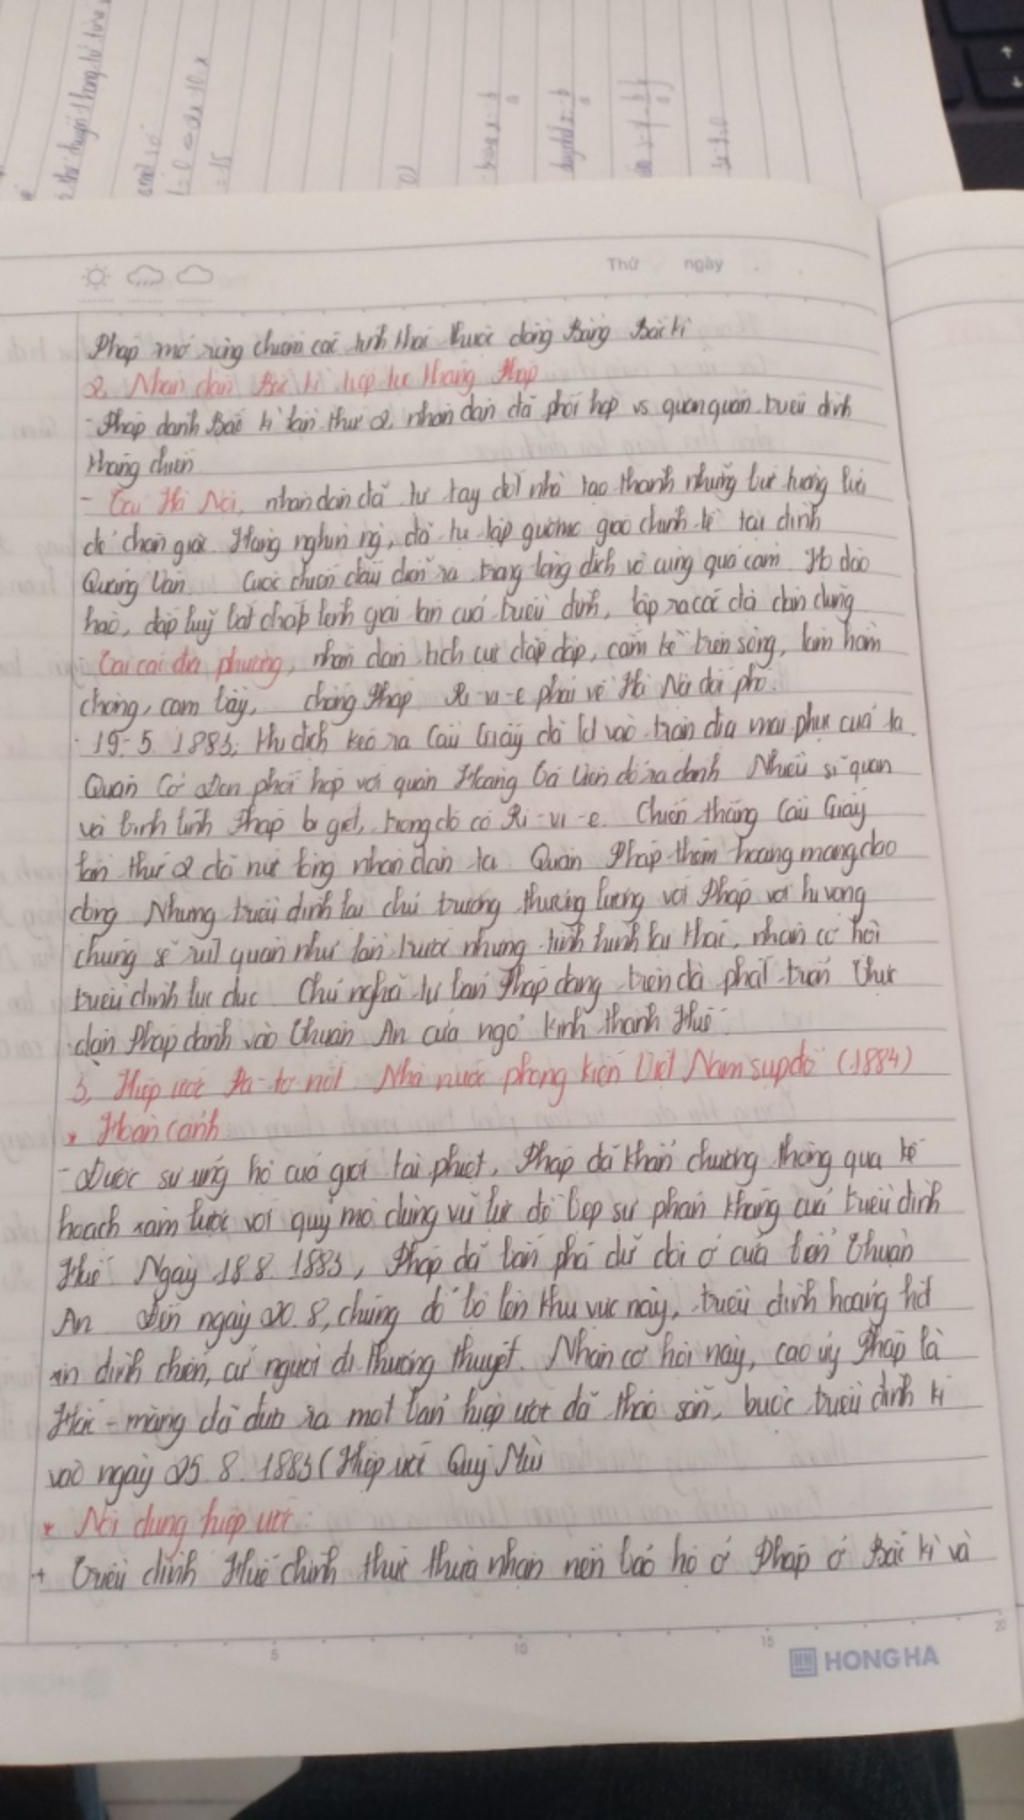 Thứ ngày
Pháp mở rộng chiếm các tỉnh khác thuộc đồng Bằng Bắc kì
2. Nhân dân Bắc kì tiếp tục kháng Pháp
- Pháp đánh Bắc kì lần thứ 2, nhân dân đã phối hợp vs quan quân triều đình
kháng chiến
- Tại Hà Nội, nhân dân đã tự tay đốt nhà tạo thành những bức tường lửa
để chặn giặc Hàng nghìn ng, đã tụ tập gươm giáo chỉnh tề tại đình
Quảng Văn Cuộc chiến đấu diễn ra trong lòng địch vô cùng quả cảm Họ đào
hào, đắp luỹ bất chấp lệnh giải tán của triều đình, lập ra các đội dân dũng
Tại các địa phương, nhân dân tích cực đắp đập, cắm kè trên sông, làm hầm
chông, cạm bẫy, chống Pháp Ri-vi-e phải về Hà Nội đối phó.
- 19-5 1883, khi địch kéo ra Cầu Giấy đã lọt vào trận địa mai phục của ta.
Quân Cờ Đen phối hợp với quân Hoàng Tá Viêm đổ ra đánh Nhiều sĩ quan
và binh lính Pháp bị giết, trong đó có Ri-vi-e. Chiến thắng Cầu Giấy
lần thứ 2 đã nức lòng nhân dân ta Quân Pháp thêm hoang mang dao
động Nhưng triều đình lại chủ trương thương lượng với Pháp với hi vọng
chúng sẽ rút quân như lần trước nhưng tình hình lại khác, nhân cơ hội
triều đình lục đục Chủ nghĩa tư bản Pháp đang trên đà phát triển Thực
dân Pháp đánh vào Thuận An cửa ngõ kinh thành Huế.
3, Hiệp ước Pa-tơ-nốt Nhà nước phong kiến Việt Nam sụp đổ (1884)
* Hoàn cảnh
- Được sự ủng hộ của giới tài phiệt, Pháp đã khẩn chương thông qua kế
hoạch xâm lược với quy mô dùng vũ lực để dẹp sự phản kháng của triều đình
Huế Ngày 18.8.1883, Pháp đã bắn phá dữ dội ở cửa biển Thuận
An Đến ngày 20.8, chúng đổ bộ lên khu vực này, triều đình hoảng hốt
xin đình chiến, cử người đi thương thuyết. Nhân cơ hội này, cao uỷ Pháp là
Hác-măng đã đưa ra một bản hiệp ước đã thảo sẵn, buộc triều đình kí
vào ngày 25.8.1883 (Hiệp ước Quý Mùi
* Nội dung hiệp ước:
+ Triều đình Huế chính thức thừa nhận nền bảo hộ ở Pháp ở Bắc kì và
5 10 15 20
HONG HA